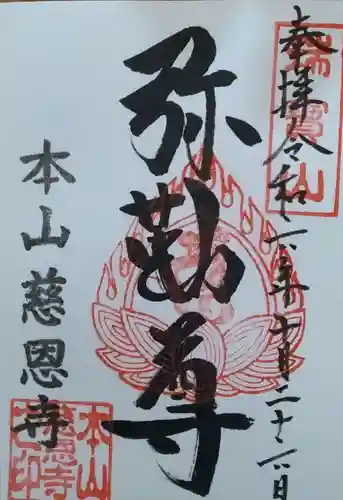 奉拝 令和六年十月二十六日
瑞寳山
弥勒尊
本山 慈恩寺
本山
慈恩寺
之印